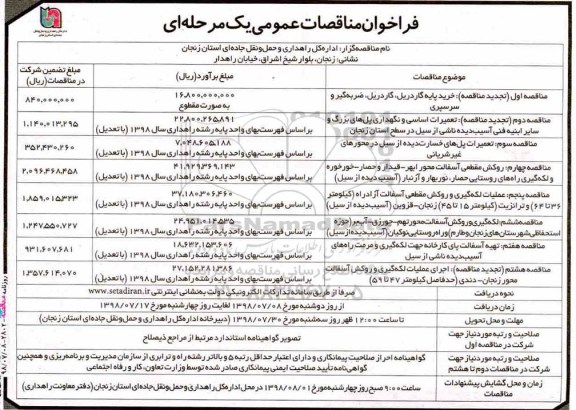 فراخوان مناقصات عمومی یک مرحله‌ای
نام مناقصه‌گزار: اداره‌کل راهداری و حمل‌ونقل جاده‌ای استان زنجان
نشانی: زنجان، بلوار شیخ اشراق، خیابان راهدار
موضوع مناقصات
مبلغ برآورد (ریال)
مبلغ تضمین شرکت در مناقصات (ریال)
مناقصه اول (تجدید مناقصه): خرید پایه گاردریل، گاردریل، ضربه‌گیر و سرسپری
۱۶,۸۰۰,۰۰۰,۰۰۰
به صورت مقطوع
۸۴۰,۰۰۰,۰۰۰
مناقصه دوم (تجدید مناقصه): تعمیرات اساسی و نگهداری پل‌های بزرگ و سایر ابنیه فنی آسیب‌دیده ناشی از سیل در سطح استان زنجان
۲۲,۸۰۰,۲۶۵,۸۹۱
براساس فهرست‌بهای واحد پایه رشته راهداری سال ۱۳۹۸ (با تعدیل)
۱,۱۴۰,۰۱۳,۲۹۵
مناقصه سوم: تعمیرات پل‌های خسارت‌دیده از سیل در محورهای غیرشریانی
۷,۰۴۸,۶۰۵,۱۸۸
براساس فهرست‌بهای واحد پایه رشته راهداری سال ۱۳۹۸ (با تعدیل)
۳۵۲,۴۳۰,۲۶۰
مناقصه چهارم: روکش مقطعی آسفالت محور ابهر-قیدار و حصار-خورخوره و لکه‌گیری راه‌های روستایی حصار، نوربهار و آزنبار (آسیب‌دیده از سیل)
۴۱,۹۲۹,۳۶۹,۱۴۳
براساس فهرست‌بهای واحد پایه رشته راهداری سال ۱۳۹۸ (با تعدیل)
۲,۰۹۶,۴۶۸,۴۵۸
مناقصه پنجم: عملیات لکه‌گیری و روکش مقطعی آسفالت آزادراه (کیلومتر ۳۶ تا ۶۴) و ترانزیت (کیلومتر ۱۵ تا ۴۵) زنجان-قزوین (آسیب‌دیده از سیل)
۳۷,۱۸۰,۳۰۶,۴۶۰
براساس فهرست‌بهای واحد پایه رشته راهداری سال ۱۳۹۸ (با تعدیل)
۱,۸۵۹,۰۱۵,۳۲۳
مناقصه ششم: لکه‌گیری و روکش آسفالت محور تهم-چورزق-آب‌بر (حوزه استحفاظی شهرستان‌های زنجان و طارم) و راه روستایی نوکیان (آسیب‌دیده از سیل)
۲۴,۹۵۱,۰۱۴,۵۳۵
براساس فهرست‌بهای واحد پایه رشته راهداری سال ۱۳۹۸ (با تعدیل)
۱,۲۴۷,۵۵۰,۷۲۷
مناقصه هفتم: تهیه آسفالت پای کارخانه جهت لکه‌گیری و مرمت راه‌های آسیب‌دیده ناشی از سیل
۱۸,۶۳۲,۱۵۳,۶۰۶
براساس فهرست‌بهای واحد پایه رشته راهداری سال ۱۳۹۸ (با تعدیل)
۹۳۱,۶۰۷,۶۸۱
مناقصه هشتم (تجدید مناقصه): اجرای عملیات لکه‌گیری و روکش آسفالت محور زنجان-دندی (حدفاصل کیلومتر ۴۷ تا ۵۹)
۲۷,۱۵۲,۲۸۱,۳۸۶
براساس فهرست‌بهای واحد پایه رشته راهداری سال ۱۳۹۸ (با تعدیل)
۱,۳۵۷,۶۱۴,۰۷۰
نحوه دریافت
صرفا از طریق سامانه تدارکات الکترونیکی دولت به نشانی اینترنتی www.setadiran.ir
زمان دریافت
از روز دوشنبه مورخ ۱۳۹۸/۰۷/۰۸ لغایت روز چهارشنبه مورخ ۱۳۹۸/۰۷/۱۷
مهلت و محل تحویل
تا ساعت ۱۲:۰۰ ظهر روز سه‌شنبه مورخ ۱۳۹۸/۰۷/۳۰ (دبیرخانه اداره‌کل راهداری و حمل‌ونقل جاده‌ای استان زنجان)
صلاحیت و رتبه موردنیاز جهت شرکت در مناقصه اول
تصویر گواهینامه استاندارد مرتبط از مراجع ذیصلاح
صلاحیت و رتبه مورد نیاز جهت شرکت در مناقصات دوم تا هشتم
گواهینامه احراز صلاحیت پیمانکاری و دارای اعتبار حداقل رتبه ۵ و بالاتر رشته راه و ترابری از سازمان مدیریت و برنامه‌ریزی و همچنین گواهی‌نامه تأیید صلاحیت ایمنی پیمانکاری صادر شده توسط وزارت تعاون، کار و رفاه اجتماعی
زمان و محل گشایش پیشنهادات مناقصات
ساعت ۹:۰۰ صبح روز چهارشنبه مورخ ۱۳۹۸/۰۸/۰۱ در محل اداره‌کل راهداری و حمل‌ونقل جاده‌ای استان زنجان (دفتر معاونت راهداری)